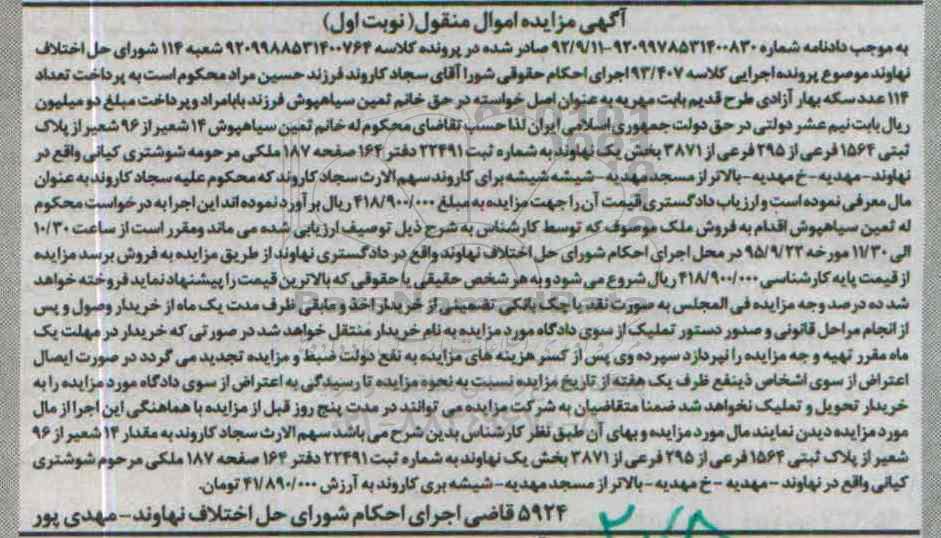 آگهی مزایده اموال منقول (نوبت اول)
به موجب دادنامه شماره ۹۲۰۹۹۷۸۵۳۱۴۰۰۸۳۰-۹۲/۹/۱۱ صادر شده در پرونده کلاسه ۹۲۰۹۹۸۸۵۳۱۴۰۰۷۶۴ شعبه ۱۱۴ شورای حل اختلاف
نهاوند موضوع پرونده اجرایی کلاسه ۹۳/۴۰۷ اجرای احکام حقوقی شورا آقای سجاد کاروند فرزند حسین مراد محکوم است به پرداخت تعداد
۱۱۴ عدد سکه بهار آزادی طرح قدیم بابت مهریه به عنوان اصل خواسته در حق خانم ثمین سیاهپوش فرزند بابامراد و پرداخت مبلغ دو میلیون
ریال بابت نیم عشر دولتی در حق دولت جمهوری اسلامی ایران لذا حسب تقاضای محکوم له خانم ثمین سیاهپوش ۱۴ شعیر از ۹۶ شعیر از پلاک
ثبتی ۱۵۶۴ فرعی از ۲۹۵ فرعی از ۳۸۷۱ بخش یک نهاوند به شماره ثبت ۲۲۴۹۱ دفتر ۱۶۴ صفحه ۱۸۷ ملکی مرحومه شوشتری کیانی واقع در
نهاوند - مهدیه - خ مهدیه - بالاتر از مسجد مهدیه - شیشه شیشه برای کاروند سهم الارث سجاد کاروند که محکوم علیه سجاد کاروند به عنوان
مال معرفی نموده است و ارزیاب دادگستری قیمت آن را جهت مزایده به مبلغ ۴۱۸/۹۰۰/۰۰۰ ریال برآورد نموده اند این اجرا به درخواست محکوم
له ثمین سیاهپوش اقدام به فروش ملک موصوف که توسط کارشناس به شرح ذیل توصیف ارزیابی شده می ماند و مقرر است از ساعت ۱۰/۳۰
الی ۱۱/۳۰ مورخه ۹۵/۹/۲۳ در محل اجرای احکام شورای حل اختلاف نهاوند واقع در دادگستری نهاوند از طریق مزایده به فروش برسد مزایده
از قیمت پایه کارشناسی ۴۱۸/۹۰۰/۰۰۰ ریال شروع می شود و به هر شخص حقیقی یا حقوقی که بالاترین قیمت را پیشنهاد نماید فروخته خواهد
شد ده درصد وجه مزایده فی المجلس به صورت نقد یا چک بانکی تضمینی از خریدار اخذ و مابقی ظرف مدت یک ماه از خریدار وصول و پس
از انجام مراحل قانونی و صدور دستور تملیک از سوی دادگاه مورد مزایده به نام خریدار منتقل خواهد شد در صورتی که خریدار در مهلت یک
ماه مقرر تهیه و جه مزایده را نپردازد سپرده وی پس از کسر هزینه های مزایده به نفع دولت ضبط و مزایده تجدید می گردد در صورت ایصال
اعتراض از سوی اشخاص ذینفع ظرف یک هفته از تاریخ مزایده نسبت به نحوه مزایده تا رسیدگی به اعتراض از سوی دادگاه مورد مزایده را به
خریدار تحویل و تملیک نخواهد شد ضمنا متقاضیان به شرکت مزایده می توانند در مدت پنج روز قبل از مزایده با هماهنگی این اجرا از مال
مورد مزایده دیدن نمایند مال مورد مزایده و بهای آن طبق نظر کارشناس بدین شرح می باشد سهم الارث سجاد کاروند به مقدار ۱۴ شعیر از ۹۶
شعیر از پلاک ثبتی ۱۵۶۴ فرعی از ۲۹۵ فرعی از ۳۸۷۱ بخش یک نهاوند به شماره ثبت ۲۲۴۹۱ دفتر ۱۶۴ صفحه ۱۸۷ ملکی مرحوم شوشتری
کیانی واقع در نهاوند - مهدیه - خ مهدیه - بالاتر از مسجد مهدیه - شیشه بری کاروند به آرزش ۴۱/۸۹۰/۰۰۰ تومان.
۵۹۲۴ قاضی اجرای احکام شورای حل اختلاف نهاوند - مهدی پور